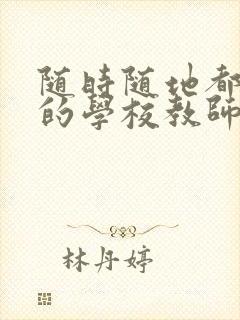 随時随地都
的學校教師
林丹婷